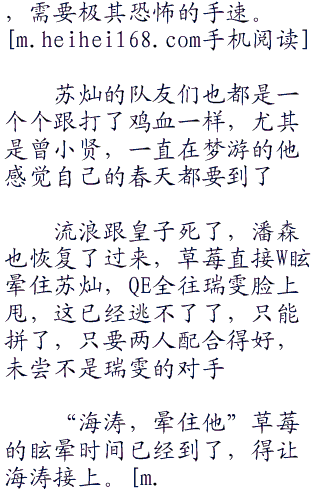 ，需要极其恐怖的手速。
[m.heihei168.com手机阅读]
苏灿的队友们也都是一
个个跟打了鸡血一样，尤其
是曾小贤，一直在梦游的他
感觉自己的春天都要到了
流浪跟皇子死了，潘森
也恢复了过来，草莓直接W眩
晕住苏灿，QE全往瑞雯脸上
甩，这已经逃不了了，只能
拼了，只要两人配合得好，
未尝不是瑞雯的对手
“海涛，晕住他”草莓
的眩晕时间已经到了，得让
海涛接上。[m.